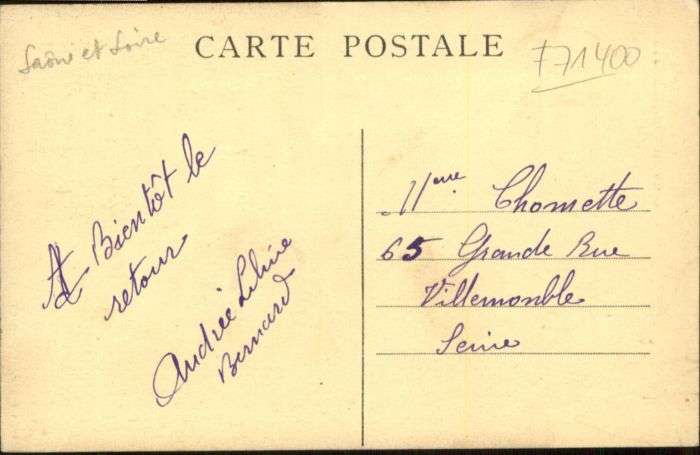 Saône et Loire
CARTE POSTALE
F71400
A Bientôt le
retour
Andrée Liline
Bernard
Mme Chomette
65 Grande Rue
Villemomble
Seine